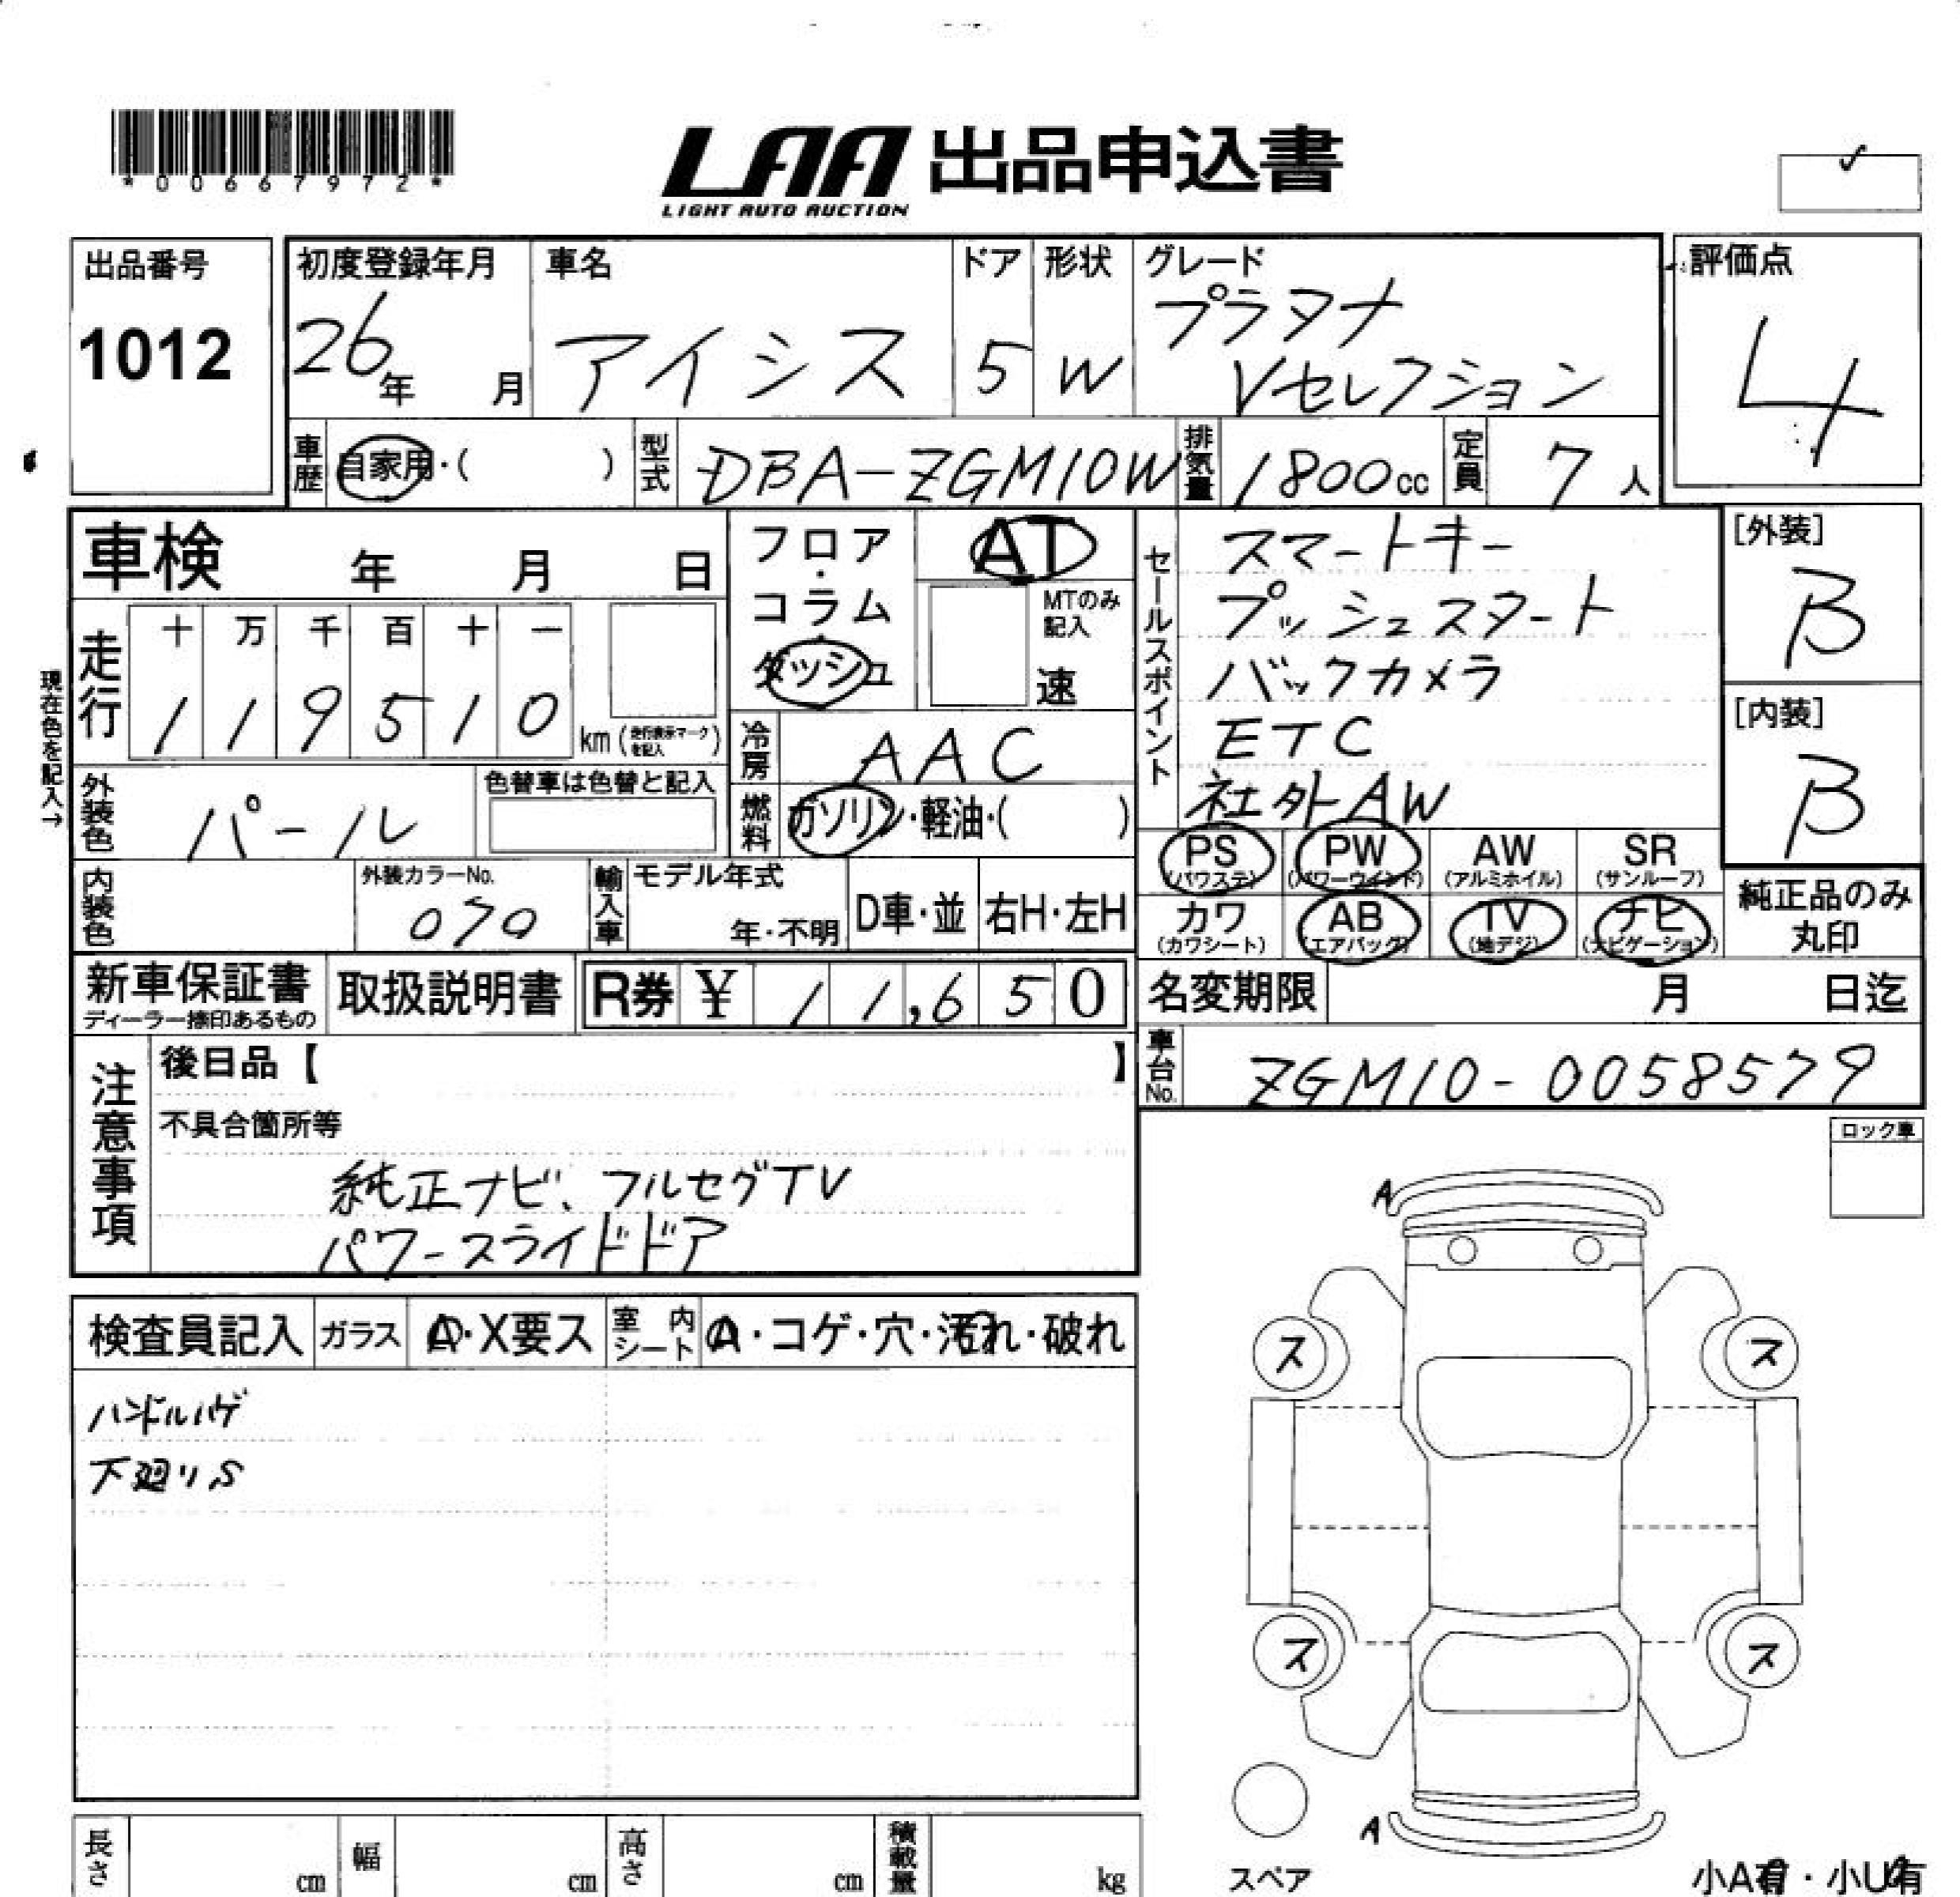 *00667972*
LAA 出品申込書
LIGHT AUTO AUCTION
✓
出品番号
1012
初度登録年月
26年 月
車名
アイシス
ドア
5
形状
W
グレード
プラタナ
Vセレクション
評価点
4
車歴 自家用・( )
型式 DBA-ZGM10W
排気量 1800cc
定員 7人
車検 年 月 日
フロア・コラム・ダッシュ
AT
MTのみ記入
速
セールスポイント
スマートキー
プッシュスタート
バックカメラ
ETC
社外AW
[外装]
B
[内装]
B
現在色を記入→
走行
十 万 千 百 十 一
1 1 9 5 1 0 km (走行表示マークを記入)
冷房 AAC
外装色 パール
色替車は色替と記入
燃料 ガソリン・軽油・( )
PS (パワステ) PW (パワーウインド) AW (アルミホイル) SR (サンルーフ)
カワ (カワシート) AB (エアバッグ) TV (地デジ) ナビ (ナビゲーション)
純正品のみ
丸印
内装色
外装カラーNo.
070
輸入車 モデル年式
年・不明
D車・並 右H・左H
新車保証書
ディーラー捺印あるもの
取扱説明書
R券 ¥ 11,650
名変期限 月 日迄
車台No. ZGM10-0058579
注意事項
後日品【 】
不具合箇所等
純正ナビ、フルセグTV
パワースライドドア
ロック車
検査員記入 ガラス A・X要ス 室内シート A・コゲ・穴・汚れ・破れ
ハンドルハゲ
下廻りS
A
ス ス
ス ス
A
スペア
小A有・小U有
長さ cm 幅 cm 高さ cm 積載量 kg